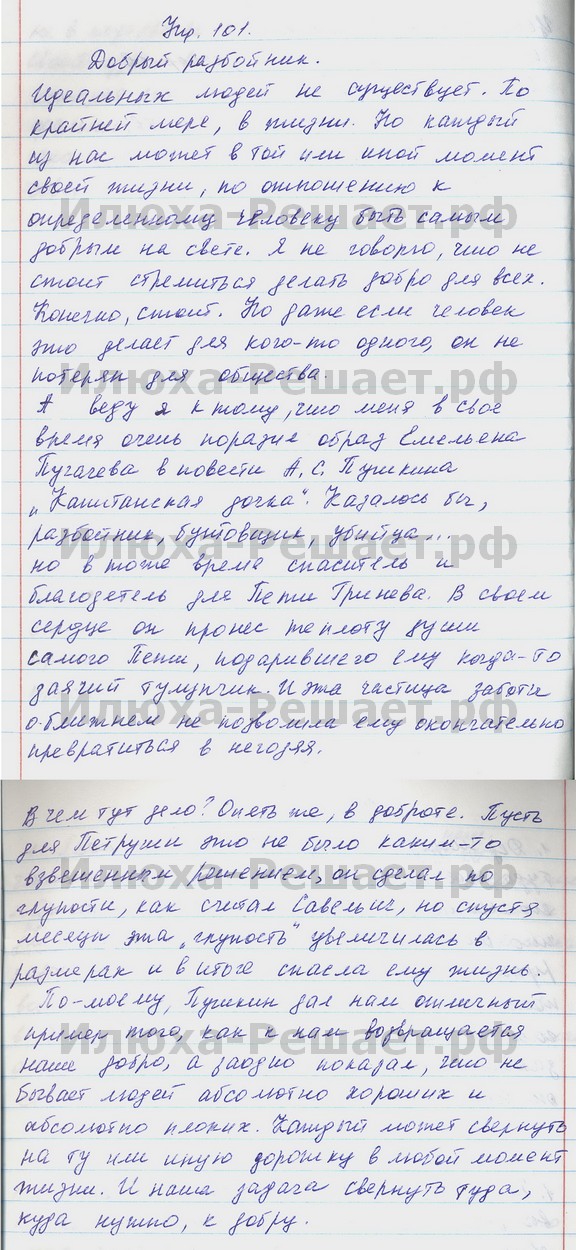 Упр. 101.
Добрый разбойник.
Идеальных людей не существует. По
крайней мере, в жизни. Но каждый
из нас может в той или иной момент
своей жизни, по отношению к
определенному человеку быть самым
добрым на свете. Я не говорю, что не
стоит стремиться делать добро для всех.
Конечно, стоит. Но даже если человек
это делает для кого-то одного, он не
потерян для общества.
А веду я к тому, что меня в свое
время очень поразил образ Емельена
Пугачева в повести А.С. Пушкина
„Капитанская дочка“. Казалось бы,
разбойник, бунтовщик, убийца...
но в тоже время спаситель и
благодетель для Пети Гринева. В своем
сердце он пронес теплоту души
самого Пети, подарившего ему когда-то
заячий тулупчик. И эта частица заботы
о ближнем не позволила ему окончательно
превратиться в негодяя.
В чем тут дело? Опять же, в доброте. Пусть
для Петруши это не было каким-то
взвешенным решением, он сделал по
глупости, как считал Савельич, но спустя
месяцы эта „глупость“ увеличилась в
размерах и в итоге спасла ему жизнь.
По-моему, Пушкин дал нам отличный
пример того, как к нам возвращается
наше добро, а заодно показал, что не
бывает людей абсолютно хороших и
абсолютно плохих. Каждый может свернуть
на ту или иную дорожку в любой момент
жизни. И наша задача свернуть туда,
куда нужно, к добру.
Илюха-Решает.рф
Илюха-Решает.рф
Илюха-Решает.рф
Илюха-Решает.рф
Илюха-Решает.рф
Илюха-Решает.рф